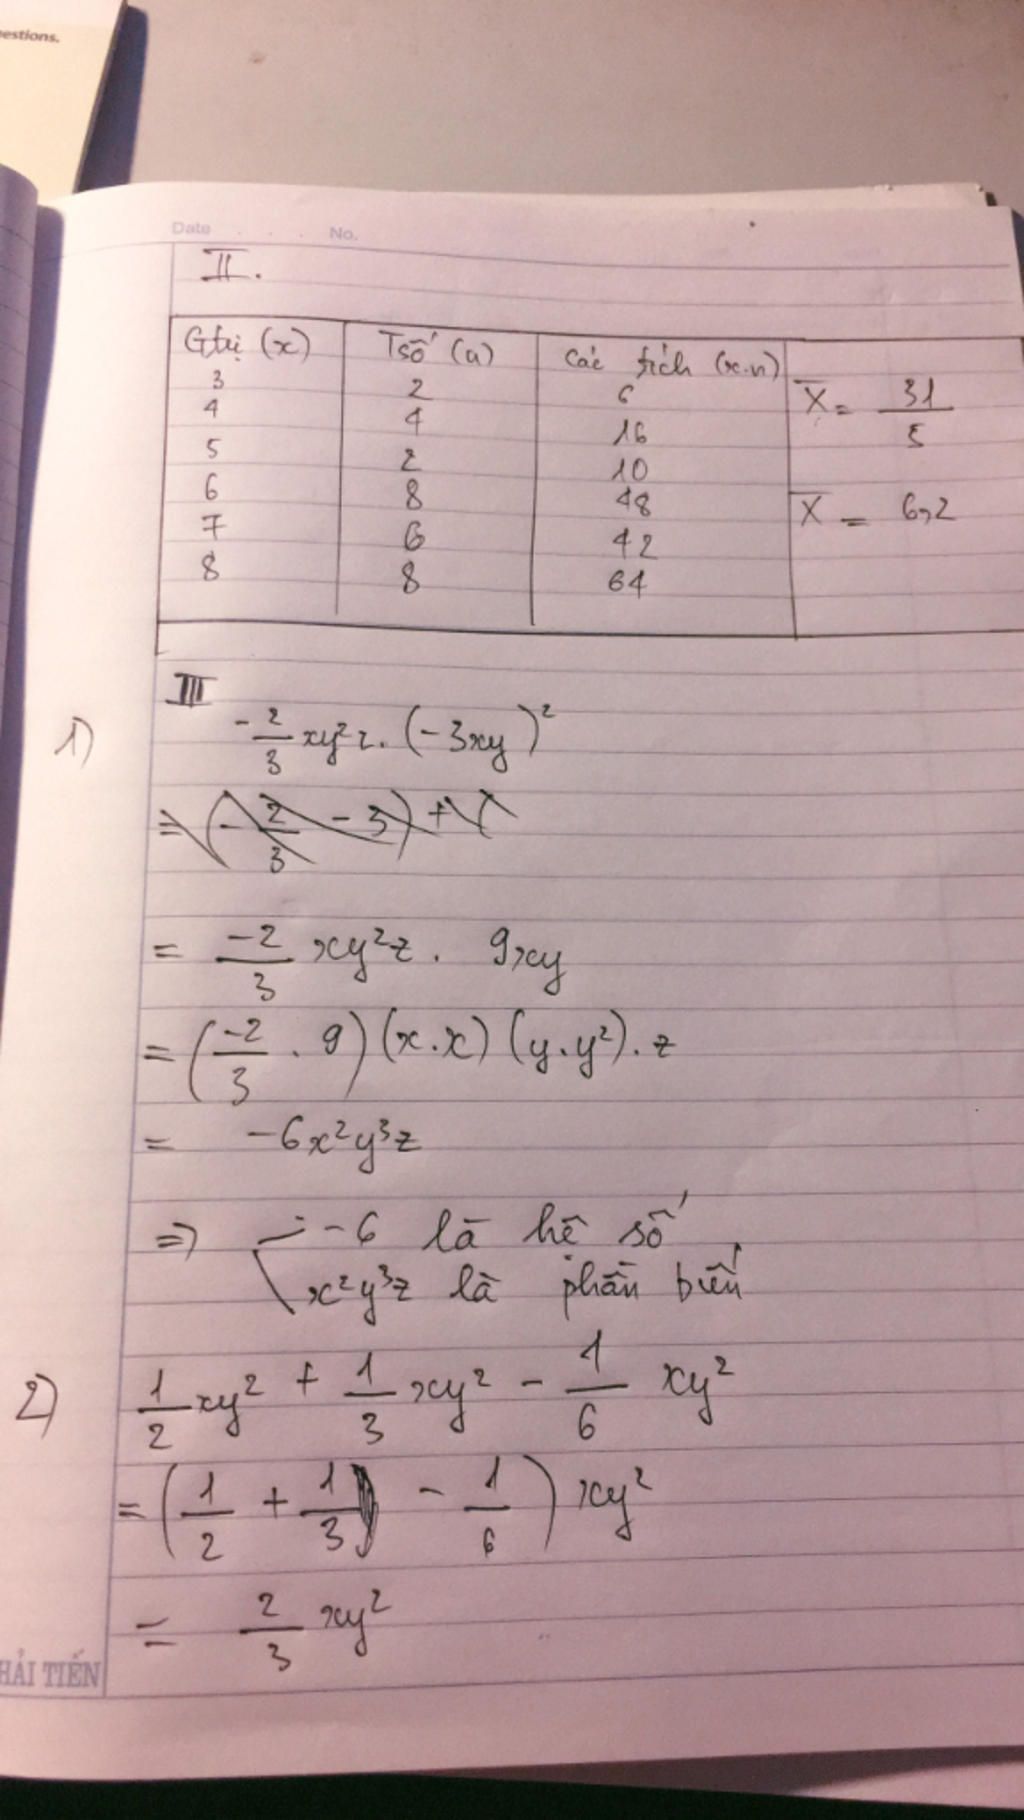 estions.
Date . . . No.
II.
Gtrị (x) Tsố (n) Các tích (x.n)
3 2 6 X̄ = 31/5
4 4 16
5 2 10
6 8 48 X̄ = 6,2
7 6 42
8 8 64
III
1) -2/3 xy²z. (-3xy)²
= (-2/3 - 3) +
= -2/3 xy²z . 9xy
= (-2/3 . 9) (x.x) (y.y²). z
= -6x²y³z
=> -6 là hệ số
x²y³z là phần biến
2) 1/2 xy² + 1/3 xy² - 1/6 xy²
= (1/2 + 1/3 - 1/6) xy²
= 2/3 xy²
HẢI TIẾN